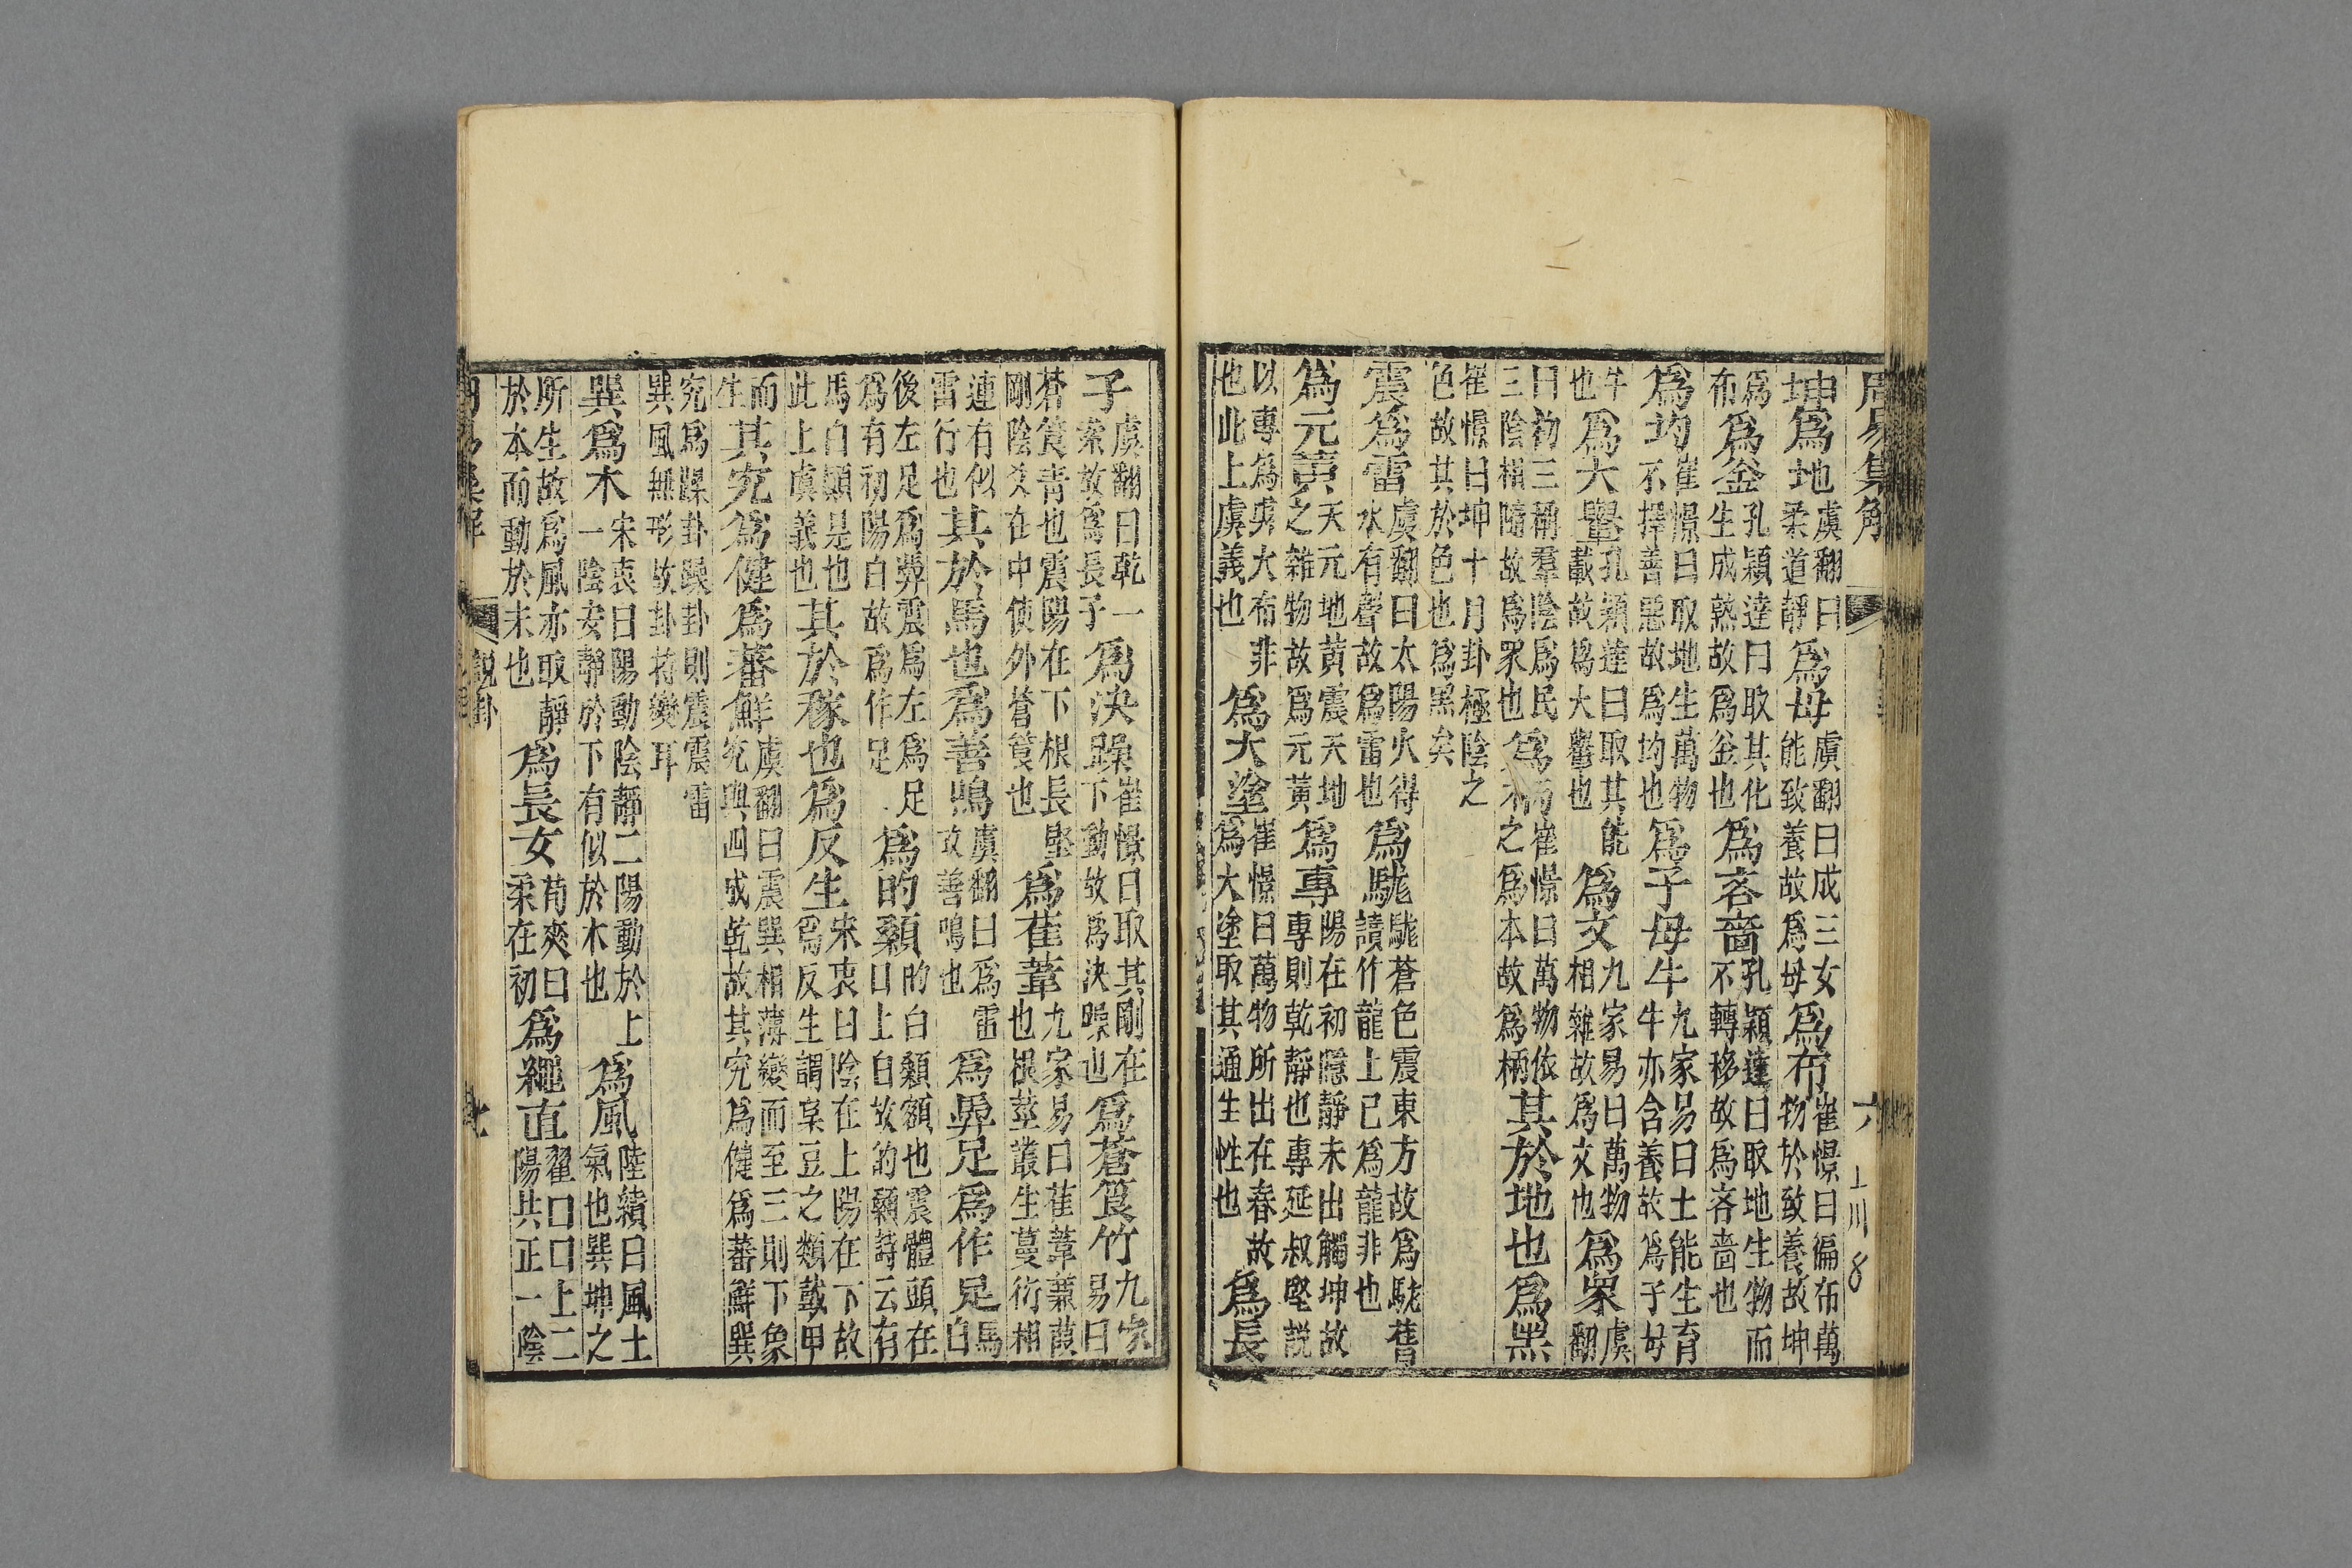 周易集解　六　上川8
坤爲地虞翻曰柔道靜爲母虞翻曰成三女能致養故爲母爲布崔憬曰徧布萬物於致養故坤
爲布爲釜孔穎達曰取其化生成熟故爲釜也爲吝嗇孔穎達曰取地生物而不轉移故爲吝嗇也
爲均崔憬曰取地生萬物不擇善惡故爲均也爲子母牛九家易曰土能生育牛亦含養故爲子母
牛也爲大轝孔穎達曰取其能載故爲大轝也爲文九家易曰萬物相雜故爲文也爲衆虞翻
曰初三稱羣陰爲民三陰相隨故爲衆也爲柄崔憬曰萬物依之爲本故爲柄其於地也爲黑
崔憬曰坤十月卦極陰之色故其於色也爲黑矣
震爲雷虞翻曰太陽火得水有聲故爲雷也爲駹駹蒼色震東方故爲駹舊讀作龍上已爲龍非也
爲元黃天元地黃震天地之雜物故爲元黃爲專陽在初隱靜未出觸坤故專則乾靜也專延叔堅説
以專爲旉大布非也此上虞義也爲大塗崔憬曰萬物所出在春故爲大塗取其通生性也爲長
子虞翻曰乾一索故爲長子爲決躁崔憬曰取其剛在下動故爲決躁也爲蒼筤竹九家易曰
蒼筤青也震陽在下根長堅剛陰爻在中使外蒼筤也爲萑葦九家易曰萑葦蒹葭也根莖叢生蔓衍相
連有似雷行也其於馬也爲善鳴虞翻曰爲雷故善鳴也爲馵足爲作足馬白
後左足爲馵震爲左爲足爲有初陽白故爲作足爲的顙的白顙額也震體頭在口上白故的顙詩云有
馬白顚是也此上虞義也其於稼也爲反生宋衷曰陰在上陽在下故爲反生謂枲豆之類戴甲
而生其究爲健爲蕃鮮虞翻曰震巽相薄變而至三則下象究與四成乾故其究爲健爲蕃鮮巽
究爲躁卦躁卦則震震雷巽風無形故卦特變耳
巽爲木宋衷曰陽動陰靜二陽動於上一陰安靜於下有似於木也爲風陸績曰風土氣也巽坤之
所生故爲風亦取靜於本而動於末也爲長女荀爽曰柔在初爲繩直翟口口上二陽共正一陰
周易集解　說卦　七